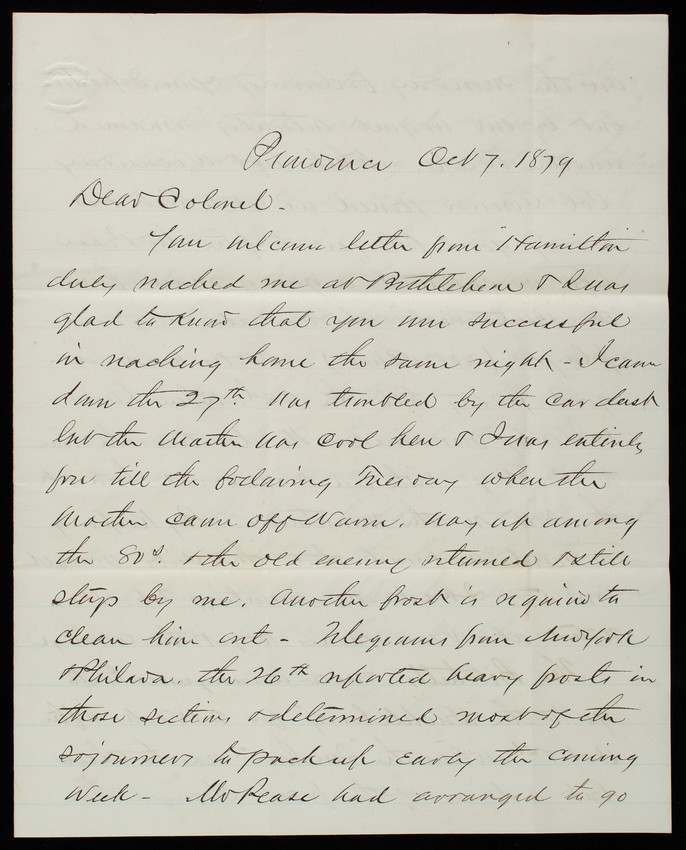 Oct 7. 1879
Dear Colonel -
Your welcome letter from "Hamilton"
duly reached me at Bethlehem & I was
glad to know that you were successful
in reaching home the same night - I came
down the 27th. Was troubled by the car dust
but the weather was cool here & I was entirely
free till the following Tuesday when the
weather came off warm. Way up among
the 80s. & the old enemy returned & still
stays by me. Another frost is required to
clean him out - Telegrams from New York
& Philada. the 26th reported heavy frosts in
those sections & determined most of the
sojourners to pack up early the coming
week - Mr Pease had arranged to go